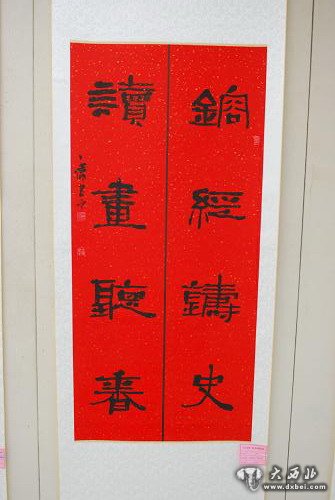 鎔經鑄史
讀畫聽春
大西北
www.dxbei.com